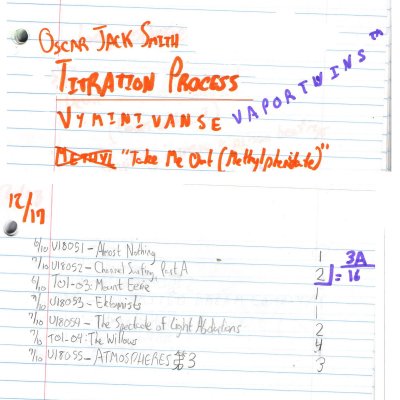 OSCAR JACK SMITH
TITRATION PROCESS
VYMINIVANSE VAPORTWINS™
METHYL "Take Me Out (Methylphenidate)"
12/17
6/10 U18051 - Almost Nothing 1
7/10 U18052 - Channel Surfing, Part A 2 ] = 3A/16
6/10 TO1-03: Mount Eerie 1
7/10 U18053 - Ektomists 1
7/10 U18054 - The Spectacle of Light Abductions 2
7/10 TO1-04: The Willows 4
7/10 U18055 - ATMOSPHERES 3 3